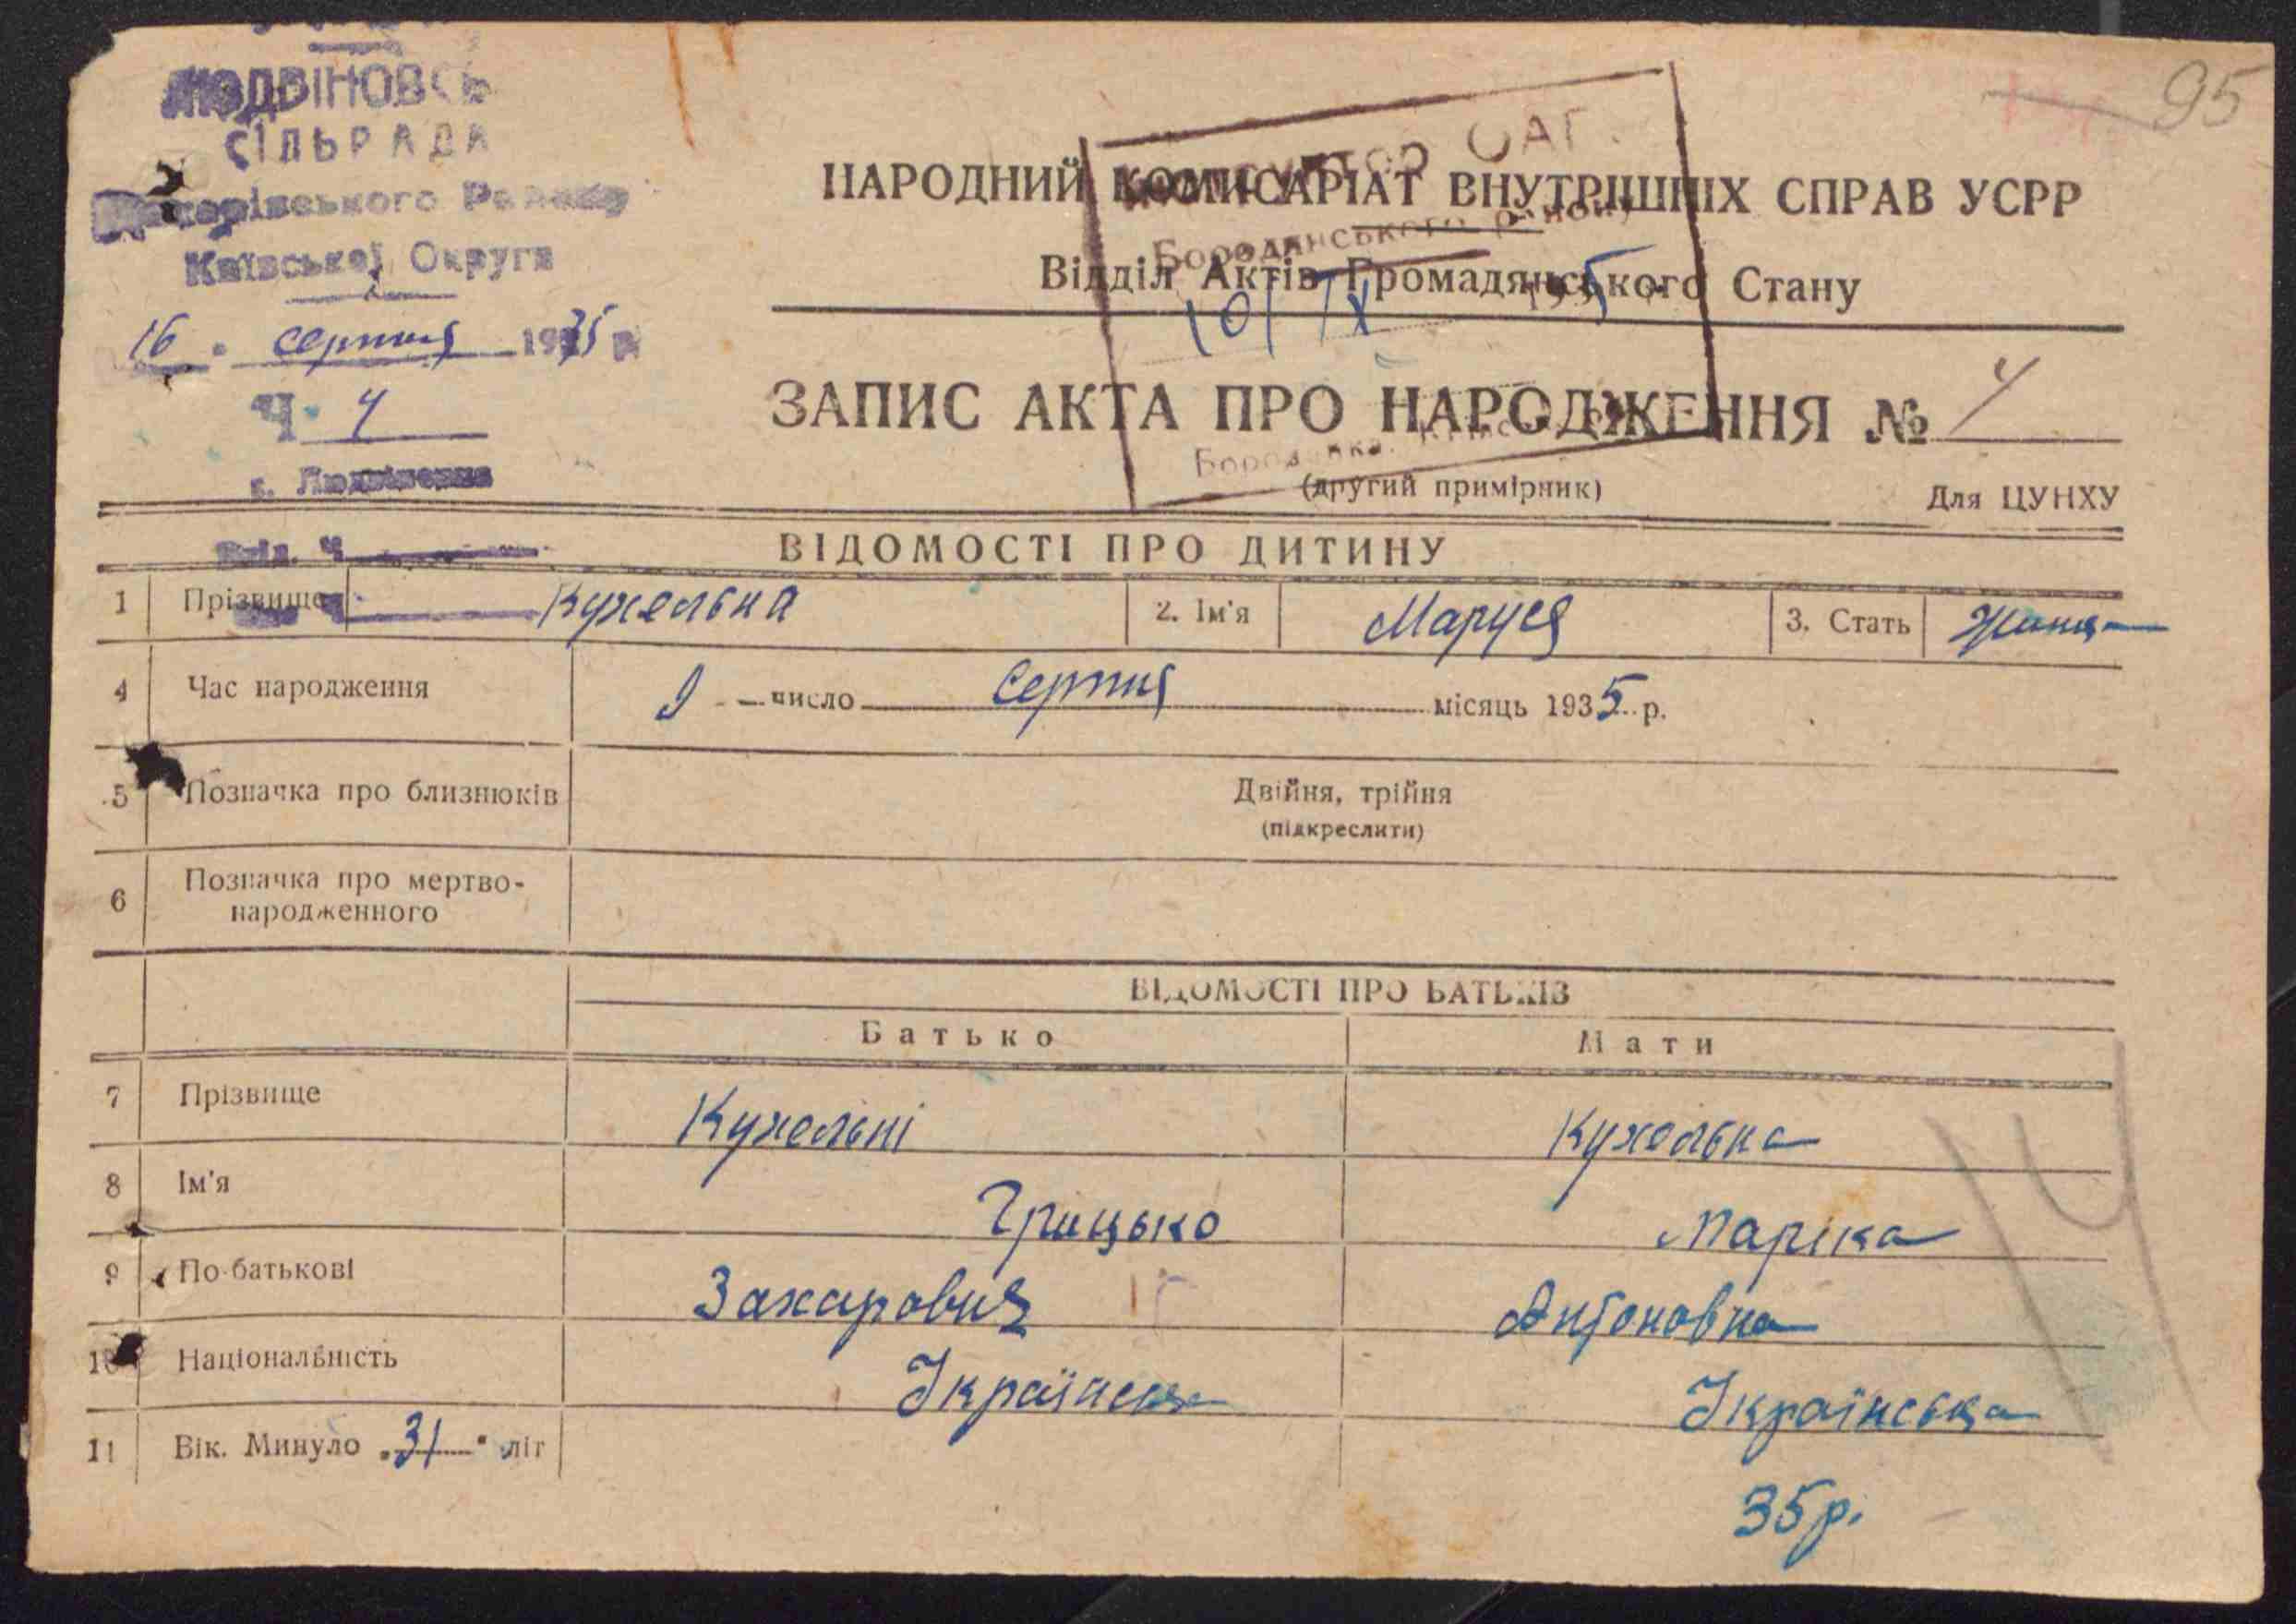 95
ЛЮДВІНОВСЬ
СІЛЬРАДА
Макарівського Району
Київської Округи
16 серпня 1935 р
Ч. 4
с. Людвіновка
НАРОДНИЙ КОМІСАРІАТ ВНУТРІШНІХ СПРАВ УСРР
Відділ Актів Громадянського Стану
ІНСПЕКТОР ЗАГ
Бородянського району
10/IX 1935
ЗАПИС АКТА ПРО НАРОДЖЕННЯ № 4
Бородянка
(другий примірник)
Для ЦУНХУ
Вхід. Ч
ВІДОМОСТІ ПРО ДИТИНУ
1 Прізвище Кухельна 2. Ім'я Маруся 3. Стать Жіноч
4 Час народження 9 число Серпня місяць 1935 р.
5 Позначка про близнюків Двійня, трійня
(підкреслити)
6 Позначка про мертво-
народженного
ВІДОМОСТІ ПРО БАТЬКІВ
Батько Мати
7 Прізвище Кухельні Кухельна
8 Ім'я Грицько Маріка
9 По-батькові Захарович Антоновна
10 Національність Українська Українська
11 Вік. Минуло 31 літ
35 р.
14